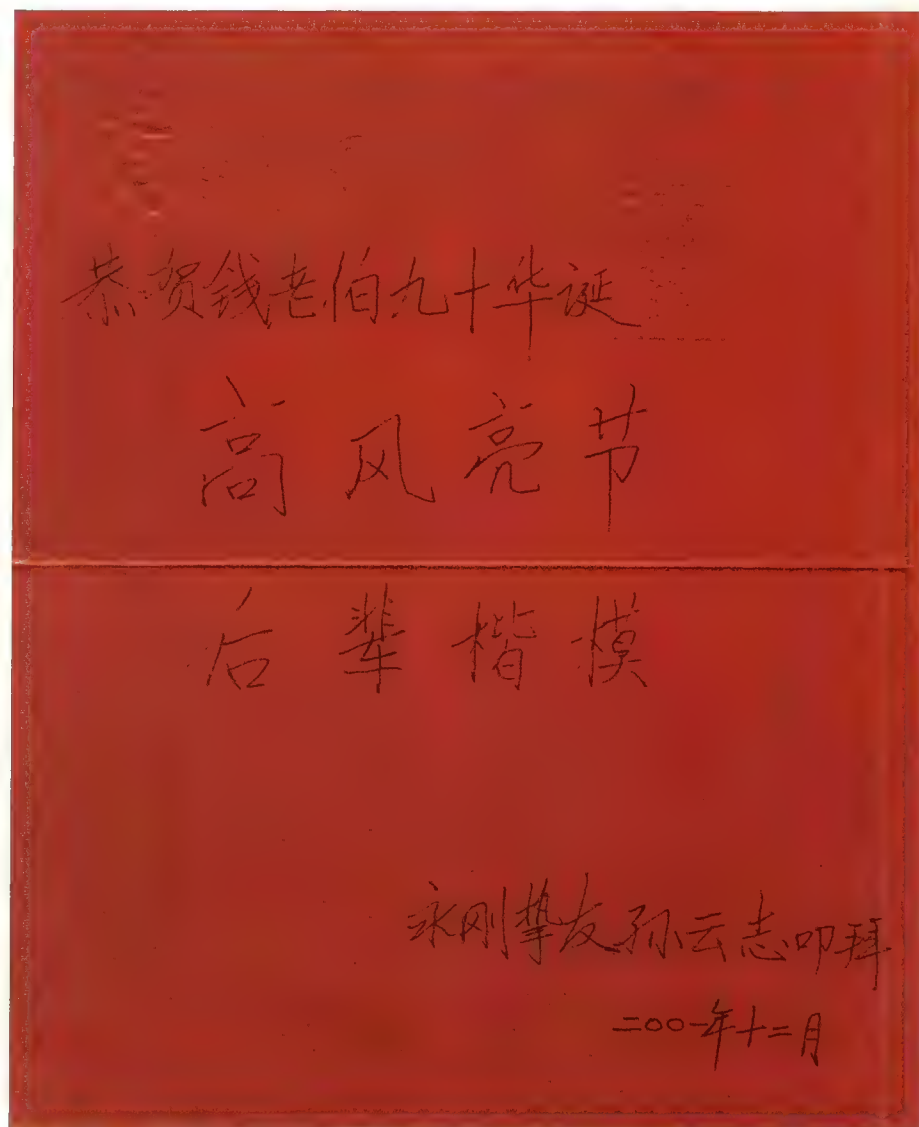 恭贺钱老伯九十华诞
高风亮节
后辈楷模
永刚挚友孙云志叩拜
二〇〇一年十二月